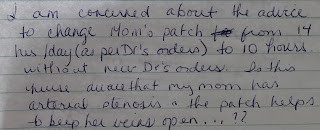 I am concerned about the advice
to change Mom's patch from 14
hrs/day (as per Dr's orders) to 10 hours
without new Dr's orders. Is this
nurse aware that my mom has
arterial stenosis & the patch helps
to keep her veins open...??